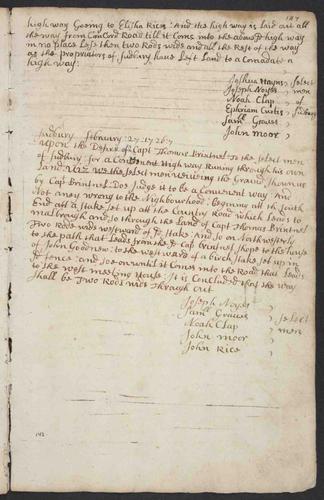 147
high way Goeing to Elisha Rice: And the high way is laid out all
the way from Concord Road till it Com's into the aboves'd high way
in no place Less then two Rods wide and all the Rest of the way
as the propriators of Sudbury have Left Land to a Comadate a
high way:
Joshua Hayns, select
Joseph Noyes, men
Noah Clap, of
Ephriam Curtis, Sudbury
Sam'l Graves,
John Moor,
Sudbury February: 27: 1726:7
upon the Desire of Cap't Thomas Brintnel To the select men
of Sudbury for a Conv way Runing through his own
Land &c: We the select men viewing the Ground Thomas
by Cap't Brintnel Dos Judge it to be a Convenient way And
Not any wrong to the Nighbourhood: Begining att the south
End att a stake set up att the Country Road which Leads to
malbrough and so through the Land of Cap't Thomas Brintnel
Two Rods wide westward of s'd stake: And so on Northwesterly
to the path that Leads from the s'd Cap't Brintnel's hous to the house
of John Goodnew: to the westward of a Birch stake set up in
s'd fence: and so on until it Comes into the Road that Leads
to the west meeting House: It is Concluded that the way
Shall be Two Rods wide Through out
Joseph Noyes,
Sam'l Graves, select
Noah Clap, men
John Moor
John Rice
142